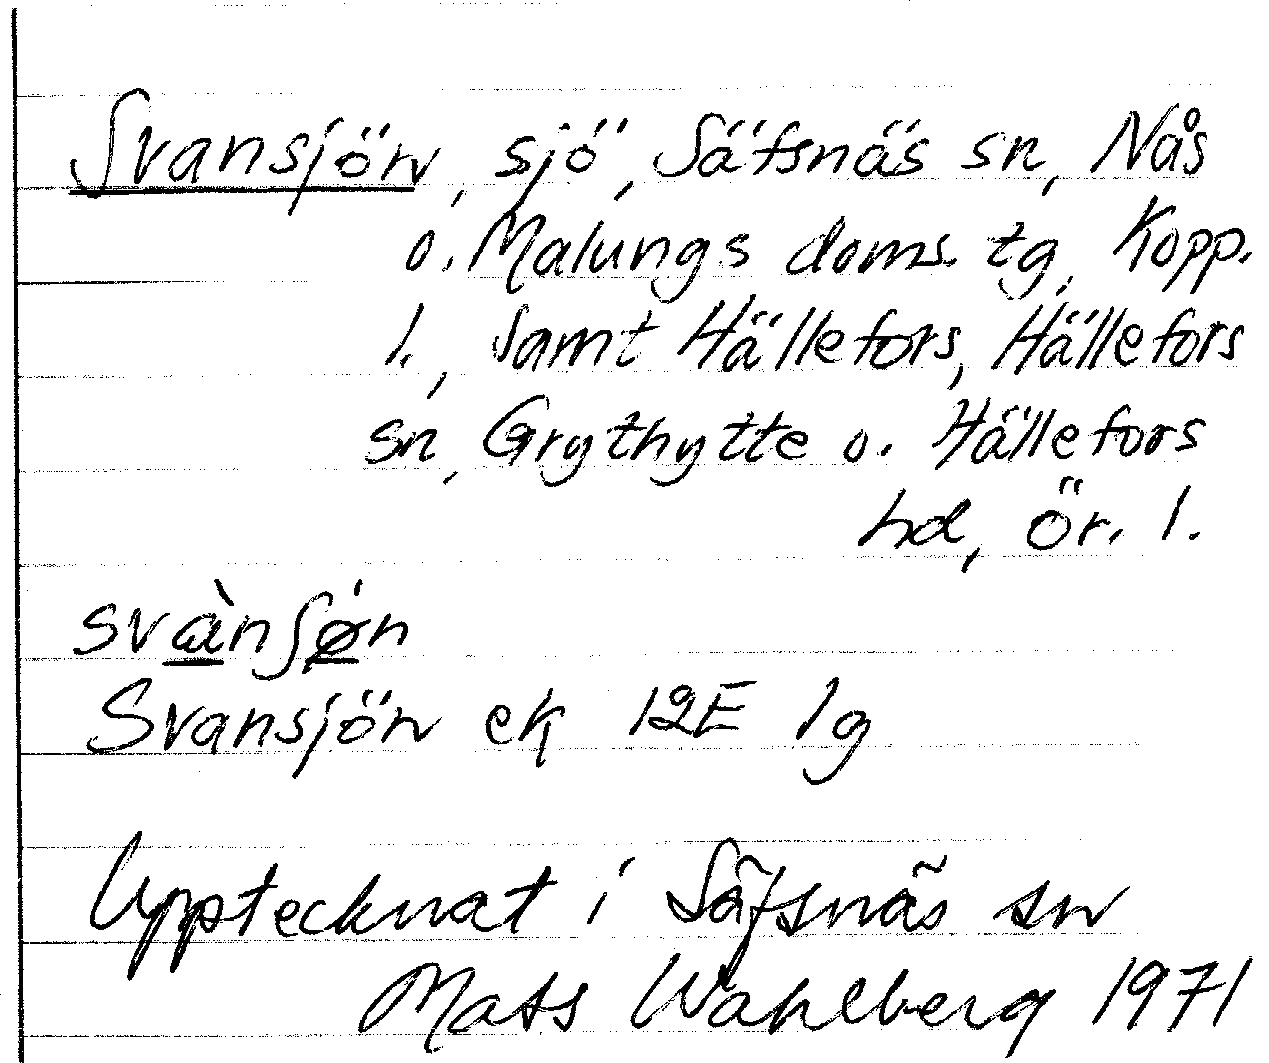 Svansjön, sjö, Säfsnäs sn, Nås
o. Malungs doms. tg, Kopp.
l., samt Hällefors, Hällefors
sn, Grythytte o. Hällefors
hd, Ör. l.
svànʃǿn
Svansjön ek 12E 1g
Upptecknat i Säfsnäs sn
Mats Wahlberg 1971